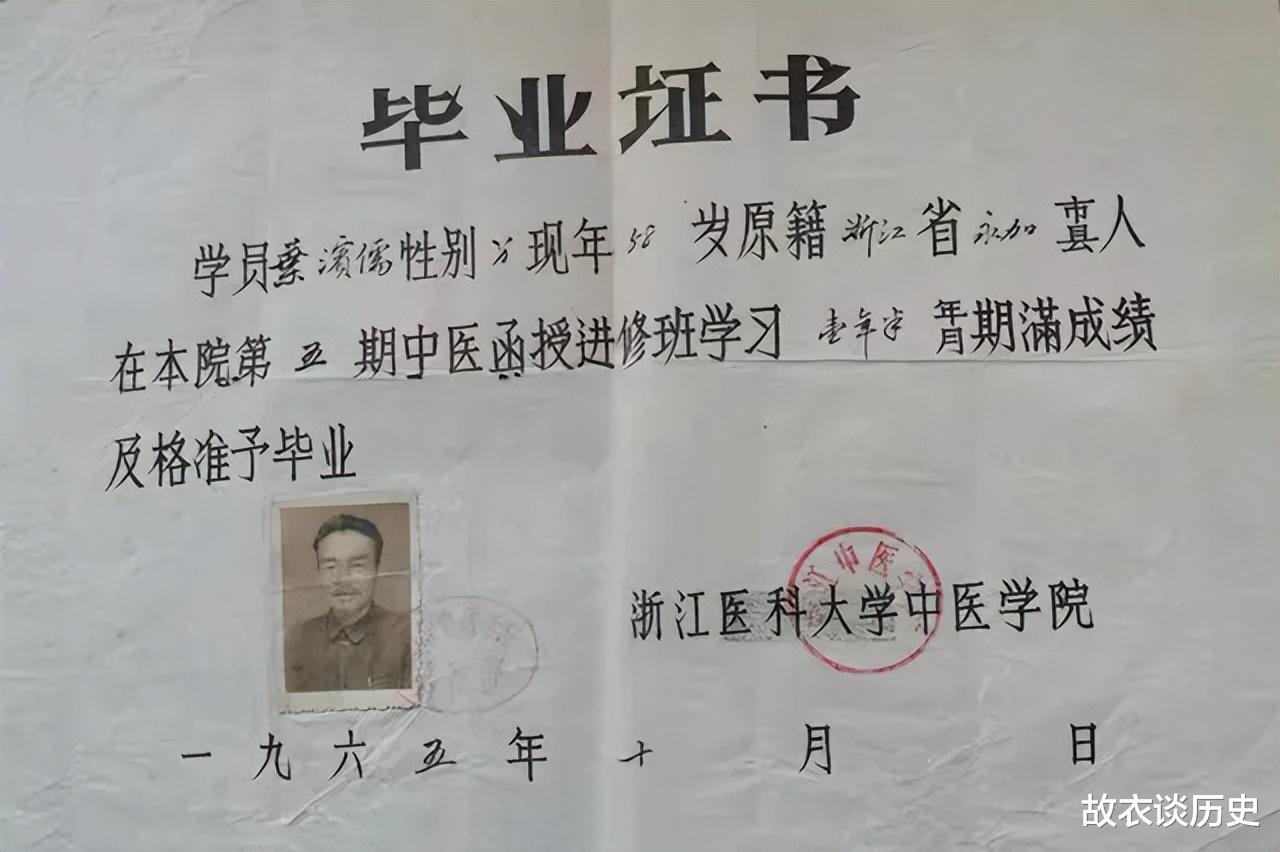 毕业证书
学员葉濱儒性别 现年58岁原籍浙江省永加市县人
在本院第五期中医函授进修班学习壹年半年月期滿成绩
及格准予毕业
浙江中医
浙江医科大学中医学院
一九六五年十月 日
故衣谈历史